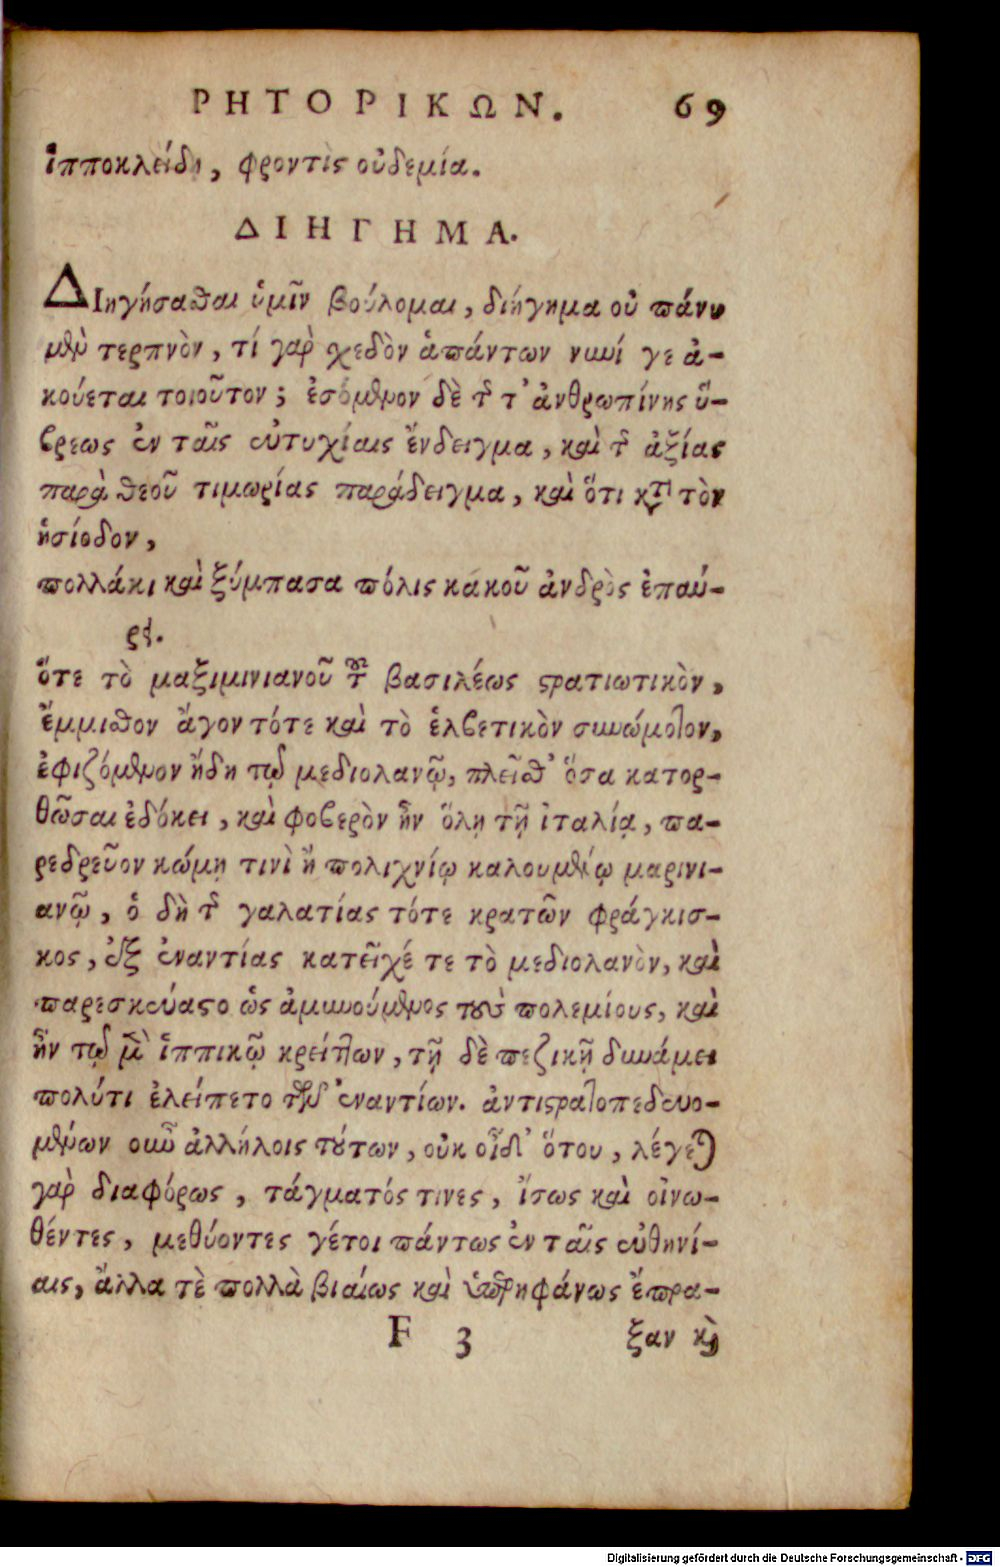 ΡΗΤΟΡΙΚΩΝ. 69
ἱπποκλείδῃ, φροντὶς οὐδεμία.
ΔΙΗΓΗΜΑ.
ΔΙηγήσασθαι ὑμῖν βούλομαι, διήγημα οὐ πάνυ
μὲν τερπνὸν, τί γὰρ σχεδὸν ἁπάντων νυνί γε ἀ-
κούεται τοιοῦτον; ἐσόμενον δὲ τῆς τ' ἀνθρωπίνης ὕ-
βρεως ἐν ταῖς εὐτυχίαις ἔνδειγμα, καὶ τῆς ἀξίας
παρὰ θεοῦ τιμωρίας παράδειγμα, καὶ ὅτι κατὰ τὸν
ἡσίοδον,
πολλάκι καὶ ξύμπασα πόλις κακοῦ ἀνδρὸς ἐπαύ-
ρει.
ὅτε τὸ μαξιμινιανοῦ τοῦ βασιλέως στρατιωτικὸν,
ἔμμισθον ἄγον τότε καὶ τὸ ἑλβετικὸν συνώμοτον,
ἐφιζόμενον ἤδη τῷ μεδιολανῷ, πλεῖσθ' ὅσα κατορ-
θῶσαι ἐδόκει, καὶ φοβερὸν ἦν ὅλῃ τῇ ἰταλίᾳ, πα-
ρεδρεῦον κώμῃ τινὶ ἢ πολιχνίῳ καλουμένῳ μαρινι-
ανῷ, ὁ δὴ τῆς γαλατίας τότε κρατῶν φράγκισ-
κος, ἐξ ἐναντίας κατεῖχέ τε τὸ μεδιολανὸν, καὶ
παρεσκεύαστο ὡς ἀμυνούμενος τοὺς πολεμίους, καὶ
ἦν τῷ μὲν ἱππικῷ κρείττων, τῇ δὲ πεζικῇ δυνάμει
πολύτι ἐλείπετο τῶν ἐναντίων. ἀντιστρατοπεδευο-
μένων οὖν ἀλλήλοις τούτων, οὐκ οἶδ' ὅτου, λέγεται
γὰρ διαφόρως, τάγματός τινες, ἴσως καὶ οἰνω-
θέντες, μεθύοντες γέτοι πάντως ἐν ταῖς εὐθηνί-
αις, ἄλλα τὲ πολλὰ βιαίως καὶ ὑπερηφάνως ἔπρα-
F 3 ξαν καὶ
Digitalisierung gefördert durch die Deutsche Forschungsgemeinschaft - DFG